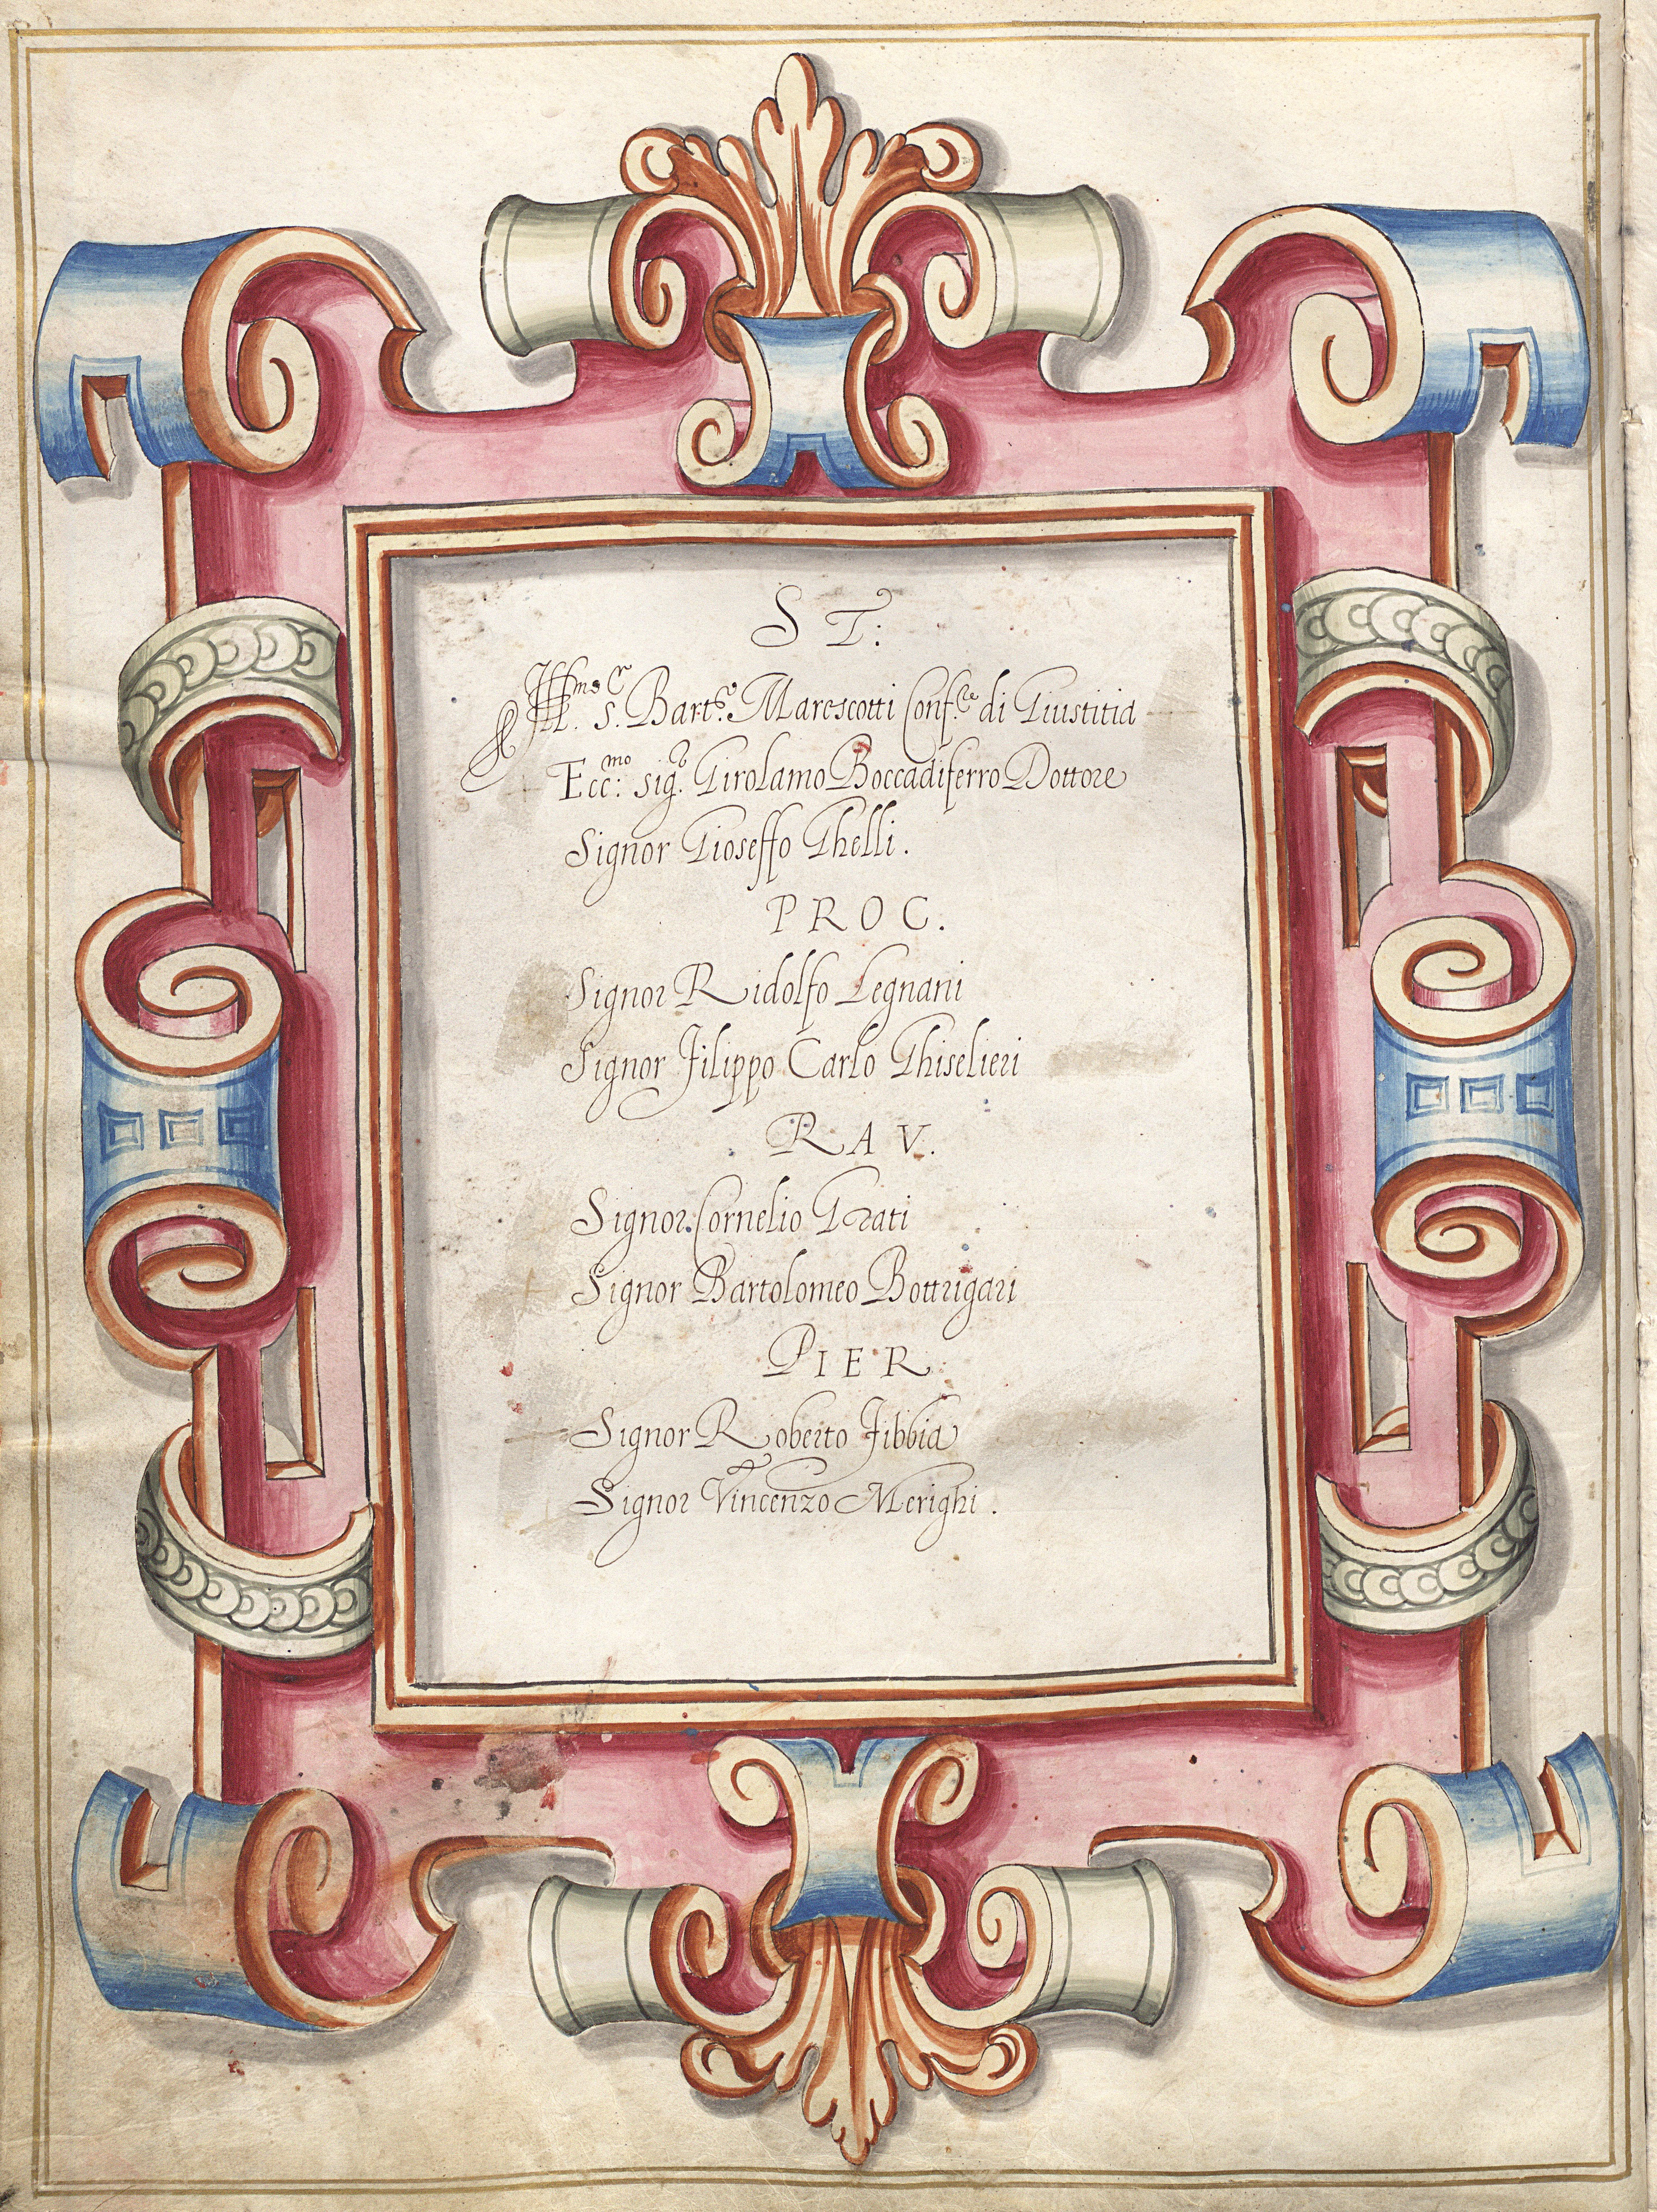 S T:
Ill.mo s.r Bart.o Marescotti Conf.re di Giustitia
Ecc:mo sig.r Girolamo Boccadiferro Dottore
Signor Gioseffo Ghelli.
PROC.
Signor Ridolfo Legnani
Signor Filippo Carlo Ghiselieri
RAV.
Signor Cornelio Grati
Signor Bartolomeo Bottrigari
PIER.
Signor Roberto Fibbia
Signor Vincenzo Merighi.